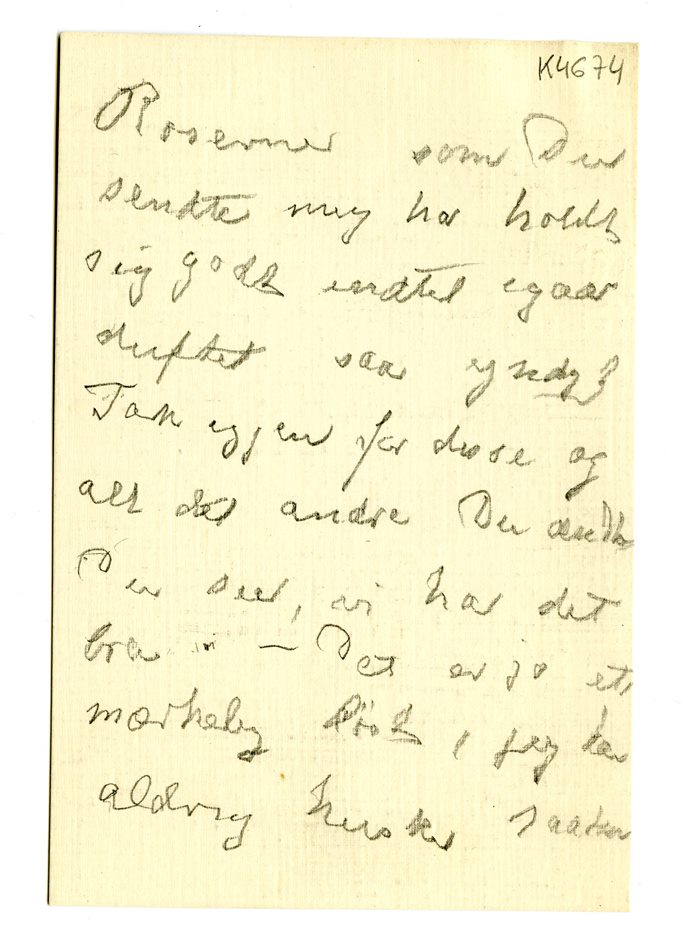 K4674
Roserner som Du
sendte mig har holdt
sig godt indtil igaar
duftet saa yndig
Tak igjen for disse og
alt det andre Du
Du seer, vi har det
bra — Det er jo et
mærkelig Løst, jeg kan
aldrig husker saadan